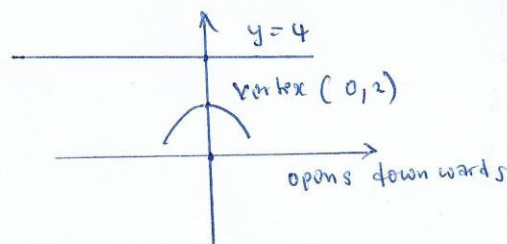 y = 4
vertex ( 0, 2)
opens downwards